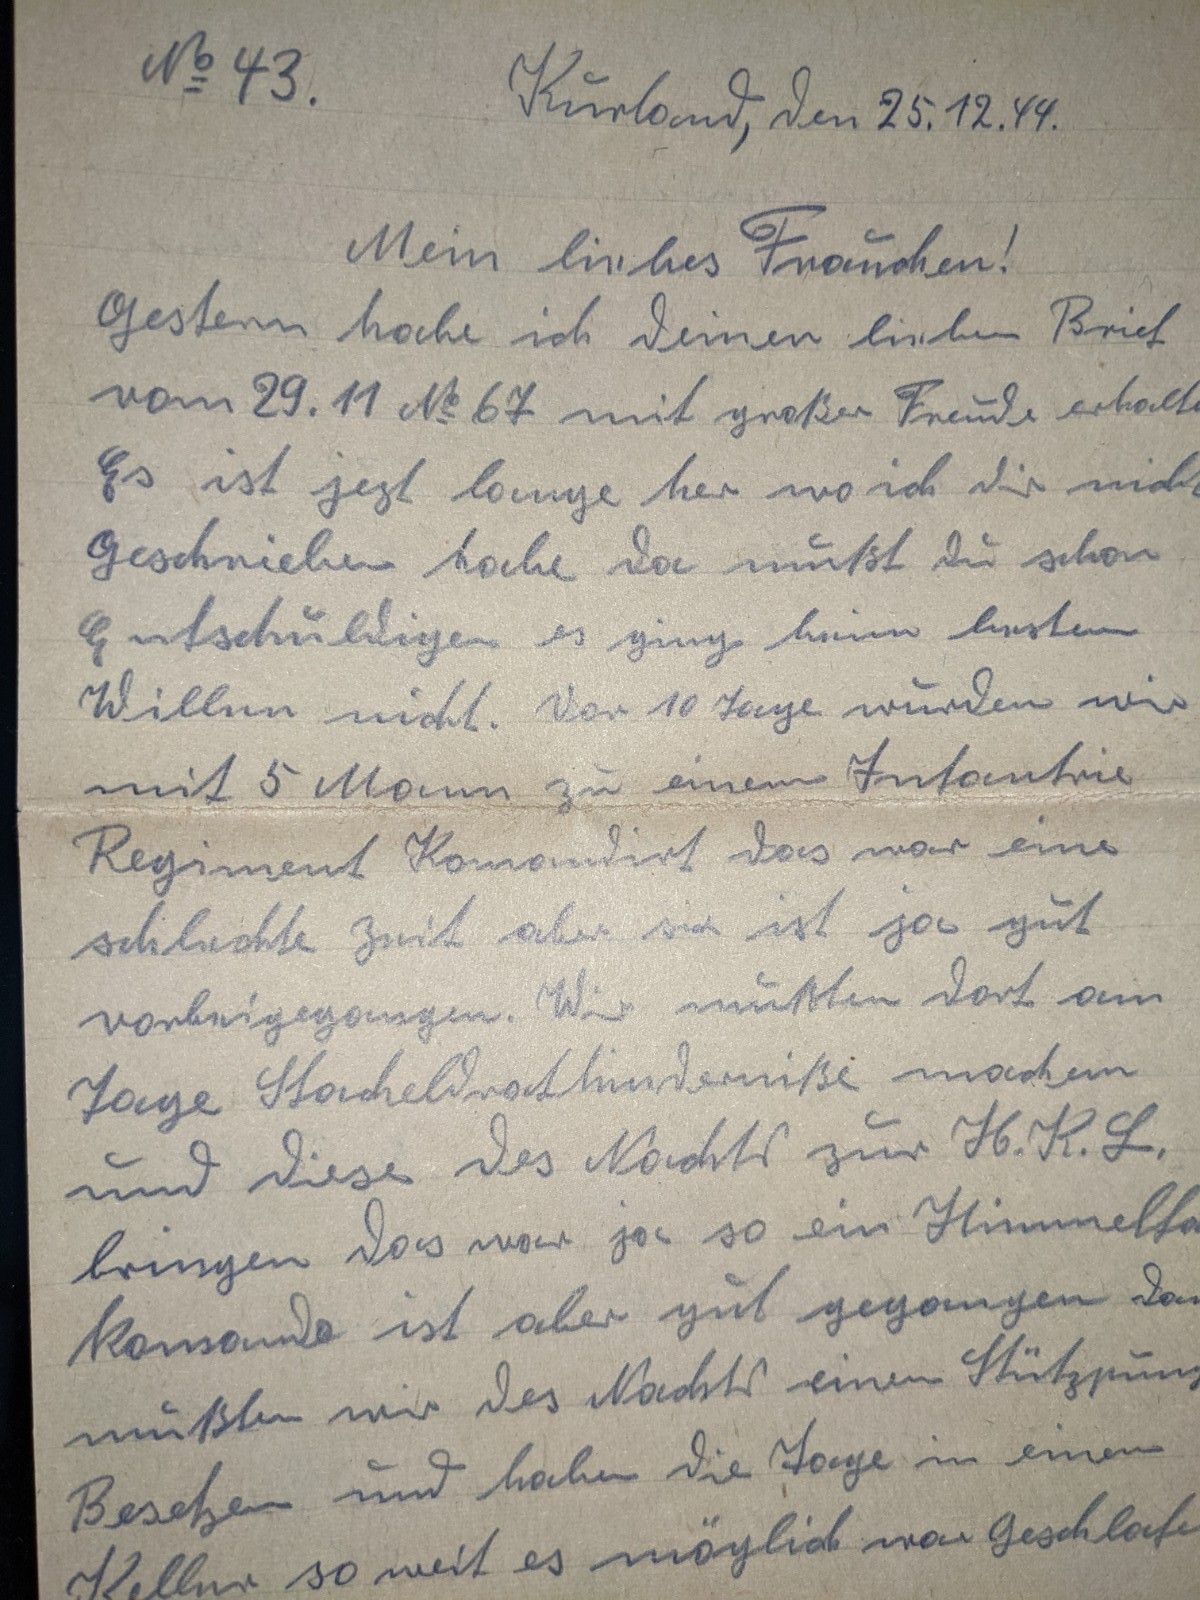 № 43.
Kurland, den 25.12.44.
Mein liebes Frauchen!
Gestern habe ich deinen lieben Brief
vom 29.11 № 67 mit großer Freude erhalte
Es ist jezt lange her wo ich dir nicht
Geschrieben habe da mußt du schon
Entschuldigen es ging beim besten
Willen nicht. Vor 10 Tage wurden wir
mit 5 Mann zu einem Infantrie
Regiment Komandirt das war eine
schlechte Zeit aber sie ist ja gut
vorbeigegangen. Wir mußten dort am
Tage Stacheldrathinderniße machen
und diese des Nachts zur H.K.L.
bringen das war ja so ein Himmelfa
Komando ist aber gut gegangen dan
mußten wir des Nachts einen Stützpun
Besetzen und haben die Tage in einem
Keller so weit es möglich war Geschlafe